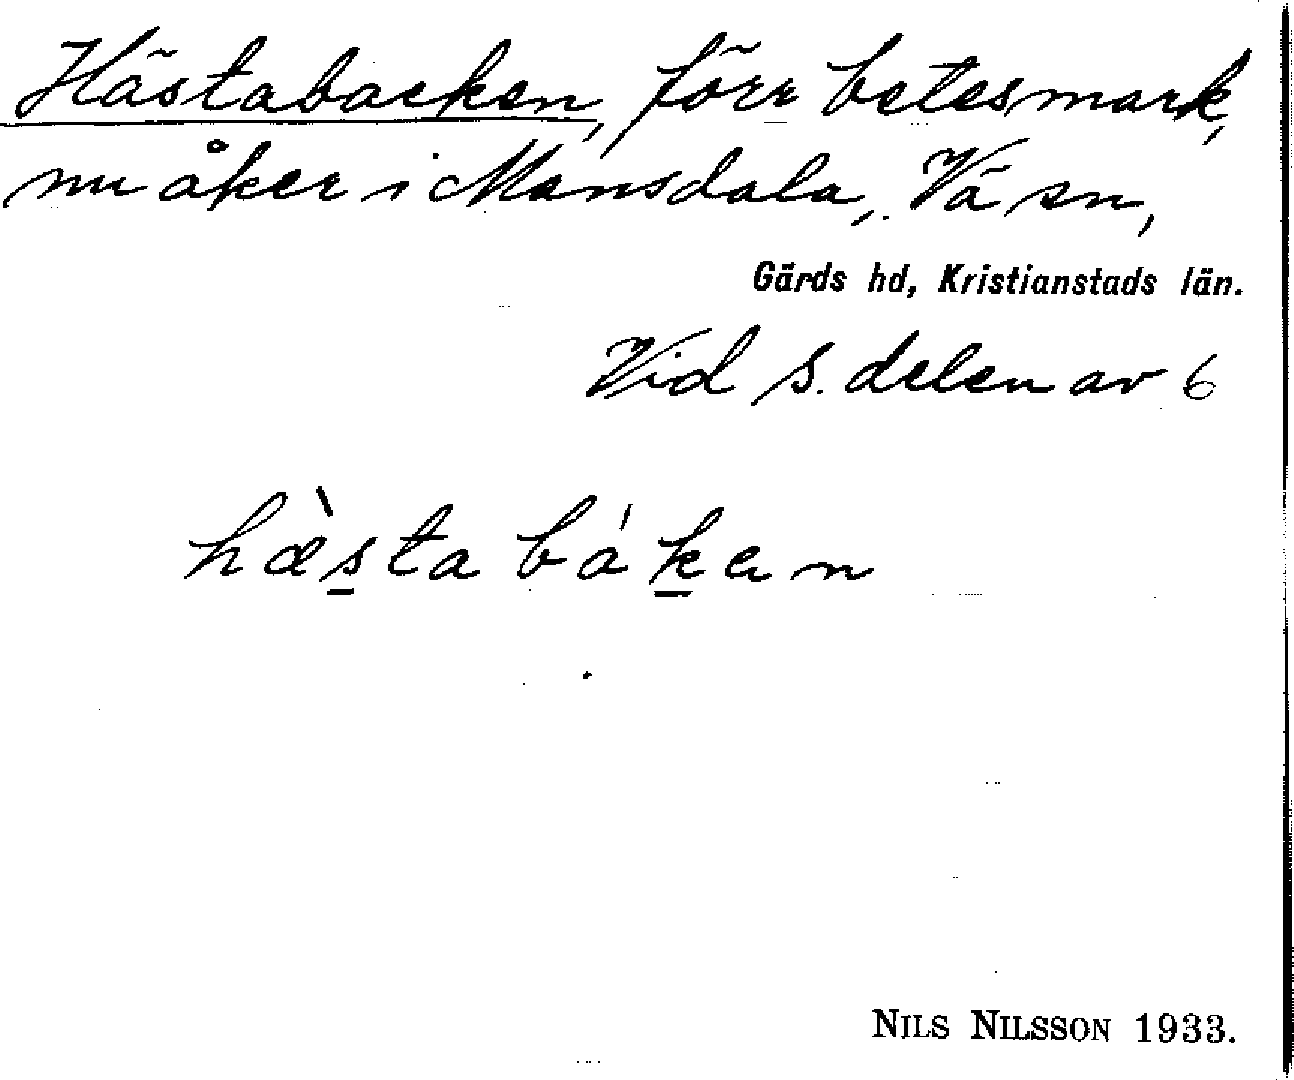 Hästabacken, förr betesmark,
nu åker i Mansdala, Vä sn,
Gärds hd, Kristianstads län.
Vid s. delen av 6
hæ̀stabákan
NILS NILSSON 1933.